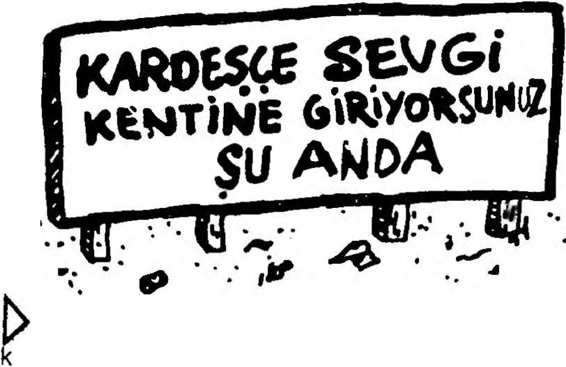 KARDEŞÇE SEVGİ
KENTİNE GİRİYORSUNUZ
ŞU ANDA
K